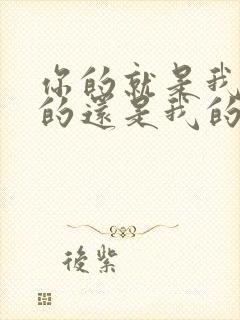 你的就是我
的還是我的
後紫